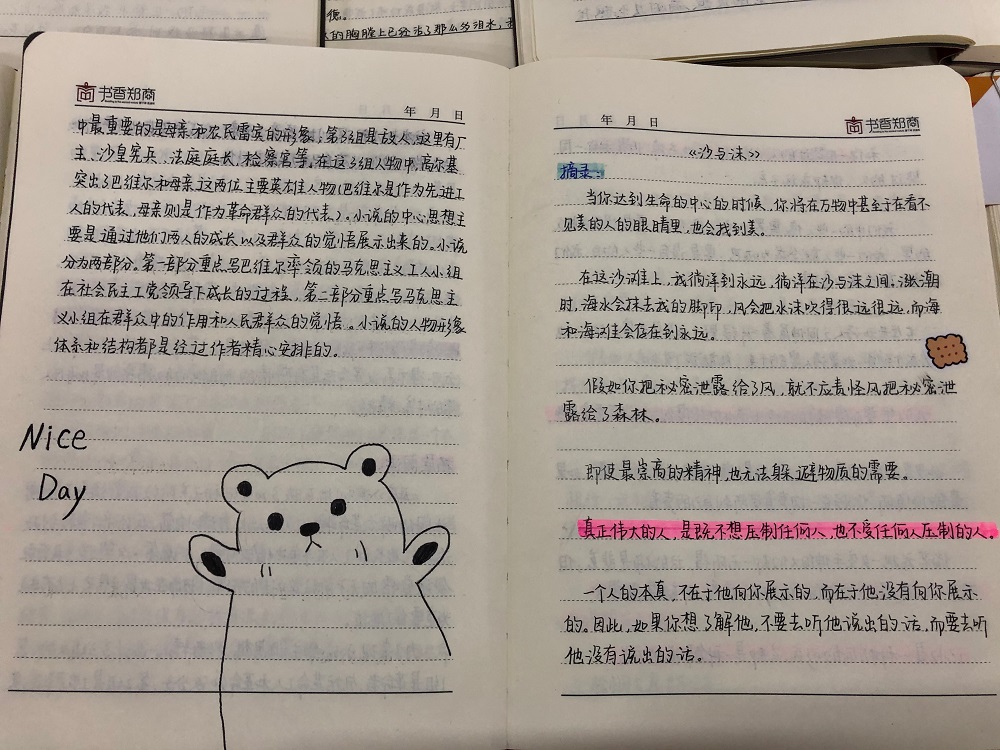 德。
的胸膛上已经沾了那么多泪水,
书香郑商
年 月 日
中最重要的是母亲和农民雷宾的形象;第3组是敌人,这里有厂
主、沙皇宪兵、法庭庭长、检察官等。在这3组人物中,高尔基
突出了巴维尔和母亲这两位主要英雄人物(巴维尔是作为先进工
人的代表,母亲则是作为革命群众的代表)。小说的中心思想主
要是通过他们两人的成长以及群众的觉悟展示出来的。小说
分为两部分。第一部分重点写巴维尔率领的马克思主义工人小组
在社会民主工党领导下成长的过程,第二部分重点写马克思主
义小组在群众中的作用和人民群众的觉悟。小说的人物形象
体系和结构都是经过作者精心安排的。
Nice
Day
年 月 日
书香郑商
《沙与沫》
摘录:
当你达到生命的中心的时候,你将在万物中甚至于在看不
见美的人的眼睛里,也会找到美。
在这沙滩上,我徜徉到永远,徜徉在沙与沫之间。涨潮
时,海水会抹去我的脚印,风会把水沫吹得很远很远,而海
和海滩会存在到永远。
假如你把秘密泄露给了风,就不应责怪风把秘密泄
露给了森林。
即使最崇高的精神,也无法躲避物质的需要。
真正伟大的人,是既不想压制任何人,也不受任何人压制的人。
一个人的本真,不在于他向你展示的,而在于他没有向你展示
的。因此,如果你想了解他,不要去听他说出的话,而要去听
他没有说出的话。